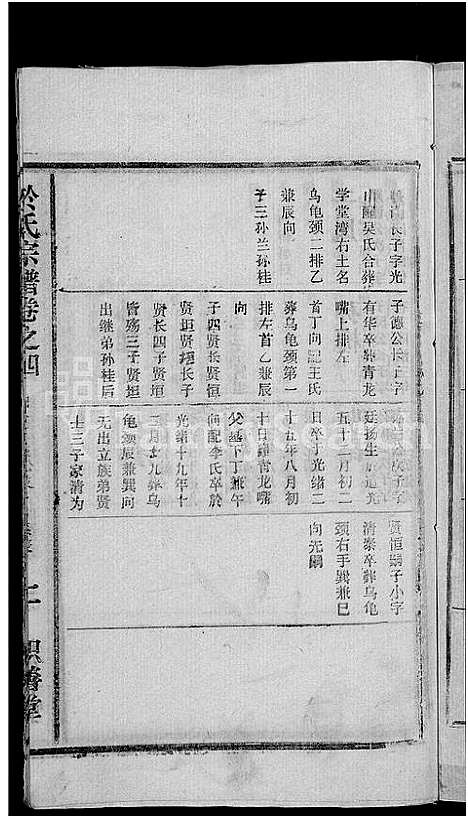 长子字光
山配吴氏合葬
学堂湾右土名
乌龟颈二排乙
兼辰向
子三孙兰孙桂
子德公长子字
有华卒葬青龙
嘴上排左
首丁向配王氏
葬乌龟颈第一
排左首乙兼辰
向
子四贤长贤恒
贤垣贤梧长子
贤长四子贤垣
皆殇三子贤恒
出继弟孙桂后
次子字
廷扬生道光
五十二月初二
日卒于光绪二
十五年八月初
十日葬青龙嘴
父墓下丁兼午
向配李氏卒於
光绪十九年十
二月廿九葬乌
龟颈辰兼巽向
无出立族弟贤
士三子家清为
贤恒嗣子小字
清泰卒葬乌龟
颈右手巽兼巳
向无嗣
於氏宗谱卷之四
积善堂